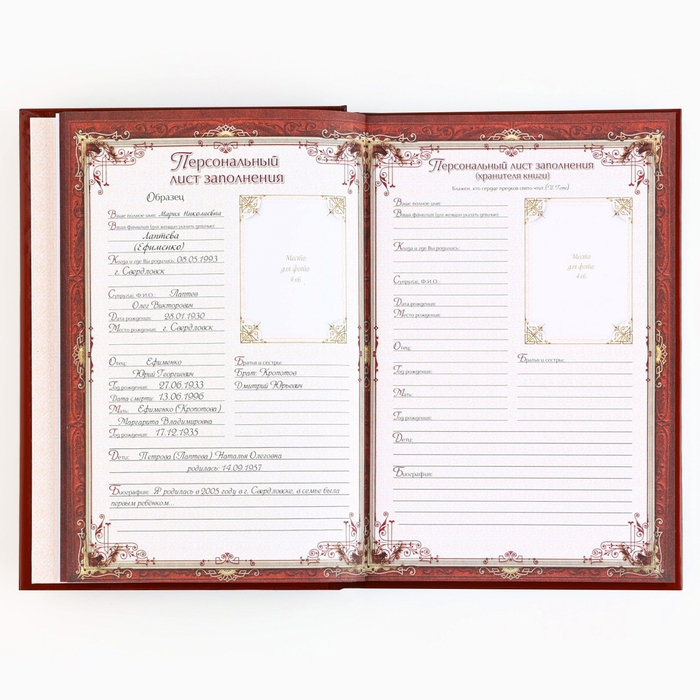 Персональный
лист заполнения
Образец
Ваше полное имя: Мария Николаевна
Ваша фамилия (для женщин указать девичью)
Лаптева
(Ефименко)
Когда и где Вы родились: 08.05.1993
г. Свердловск
Супруг(а, Ф.И.О.: Лаптов
Олег Викторович
Дата рождения: 28.01.1930
Место рождения: г. Свердловск
Отец: Ефименко
Юрий Георгиевич
Год рождения: 27.06.1933
Дата смерти: 13.06.1996
Мать: Ефименко (Кропотова)
Маргарита Владимировна
Год рождения: 17.12.1935
Место
для фото
4х6
Братья и сестры:
Брат: Кропотов
Дмитрий Юрьевич
Дети: Петрова (Лаптова) Наталья Олеговна
родилась: 14.09.1957
Биография: Я родилась в 2005 году в г. Свердловске, в семье была
первым ребёнком...
Персональный лист заполнения
(хранителя книги)
Блажен, кто сердце предков свято чтит (И. Гете)
Ваше полное имя:
Ваша фамилия (для женщин указать девичью)
Когда и где Вы родились:
Супруг(а, Ф.И.О.:
Дата рождения:
Место рождения:
Отец:
Год рождения:
Мать:
Год рождения:
Место
для фото
4х6
Братья и сестры:
Дети:
Биография: